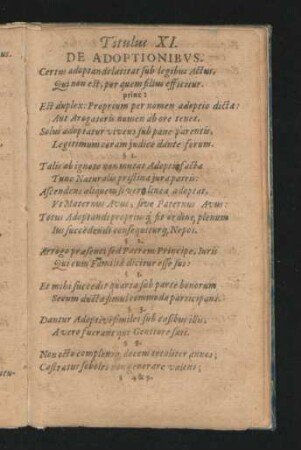 Titulus XI.
DE ADOPTIONIBVS.
Certus adoptandi latitat sub legibus Actus,
Qui non est, per quem filius efficitur.
princ:
Est duplex: Proprium per nomen adoptio dicta:
Aut Arogatoris nomen ab ore tenet.
Solus adoptatur vivens sub pane parentis,
Legitimum coram judice dante forum.
§ 2.
Talis ab ignoto non mutat Adoptio facta
Tunc Naturalis pristina jura patris:
Ascendens aliquem si vero linea adoptat,
Vt Maternus Avus, sive Paternus Avus:
Totus Adoptandi proprius fit ordine, plenum
Ius succedendi consequiturq; Nepos.
Arrogo praesenti sed Patrem Principe, Iuris
Qui cum dicitur esse sui:
Et mihi succedit quarta sub parte bonorum
Secum dicta simul commoda participans.
§ 3.
Dantur Adoptivi similes sub casibus illis,
A vero fuerant qui Genitore sati.
Non octo complens, decem totaliter annos;
Castratus soboles non generare valens;